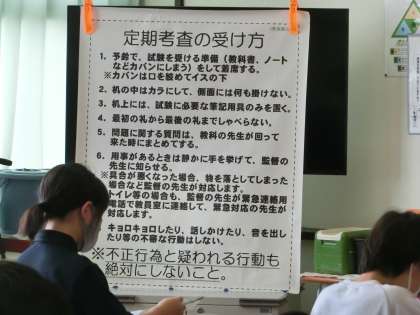 定期考査の受け方
1. 予鈴で、試験を受ける準備（教科書、ノート
などカバンにしまう）をして着席する。
※カバンは口を絞めてイスの下
2. 机の中はカラにして、側面には何も掛けない。
3. 机上には、試験に必要な筆記用具のみを置く。
4. 最初の礼から最後の礼までしゃべらない。
5. 問題に関する質問は、教科の先生が回って
来た時にまとめてする。
6. 用事があるときは静かに手を挙げて、監督の
先生に知らせる。
※具合が悪くなった場合、物を落としてしまった
場合など監督の先生が対応します。
トイレ等の場合も、監督の先生が緊急連絡用
電話で教員室に連絡して、緊急対応の先生が
対応します。
キョロキョロしたり、話しかけたり、音を出し
たり等の不審な行動はしない。
※不正行為と疑われる行動も
絶対にしないこと。